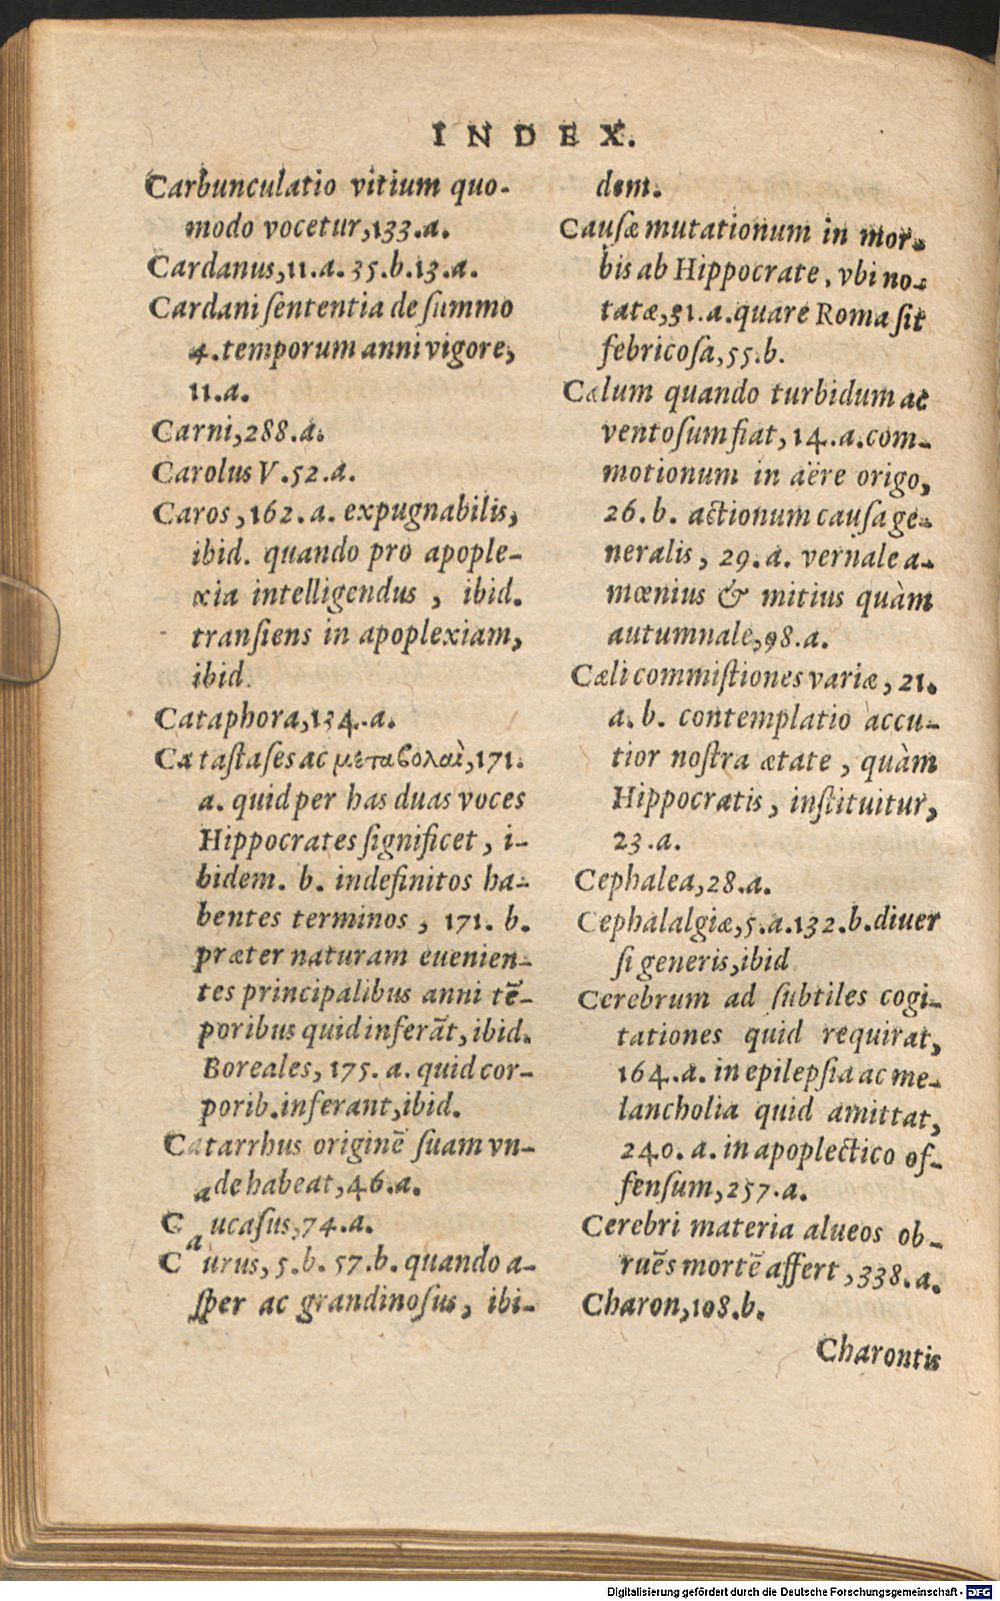 INDEX.
Carbunculatio vitium quo-
modo vocetur,133.a.
Cardanus,11.a.35.b.13.a.
Cardani ſententia de ſummo
4.temporum anni vigore,
11.a.
Carni,288.a.
Carolus V.52.a.
Caros,162.a. expugnabilis,
ibid. quando pro apople-
xia intelligendus, ibid.
tranſiens in apoplexiam,
ibid.
Cataphora,134.a.
Cataſtaſes ac μεταβολαὶ,171.
a. quid per has duas voces
Hippocrates ſignificet, i-
bidem. b. indefinitos ha-
bentes terminos, 171. b.
præter naturam euenien-
tes principalibus anni tē-
poribus quid inferāt, ibid.
Boreales, 175. a. quid cor-
porib.inferant,ibid.
Catarrhus originē ſuam vn-
de habeat,46.a.
Caucaſus,74.a.
Caurus, 5.b. 57.b. quando a-
ſper ac grandinoſus, ibi-
dem.
Cauſæ mutationum in mor-
bis ab Hippocrate, vbi no-
tatæ,31.a.quare Roma ſit
febricoſa,55.b.
Cælum quando turbidum ac
ventoſum fiat, 14.a.com-
motionum in aëre origo,
26.b. actionum cauſa ge-
neralis, 29.a. vernale a-
mœnius & mitius quàm
autumnale,98.a.
Cæli commiſtiones variæ, 21.
a. b. contemplatio accu-
tior noſtra ætate, quàm
Hippocratis, inſtituitur,
23.a.
Cephalea,28.a.
Cephalalgiæ,5.a.132.b.diuer
ſi generis,ibid
Cerebrum ad ſubtiles cogi-
tationes quid requirat,
164.a. in epilepſia ac me-
lancholia quid amittat,
240. a. in apoplectico of-
fenſum,257.a.
Cerebri materia alueos ob-
ruēs mortē affert,338.a.
Charon,108.b.
Charontis
Digitalisierung gefördert durch die Deutsche Forschungsgemeinschaft - DFG